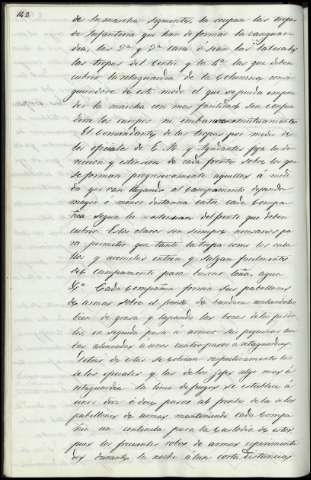 142
de la marcha siguiente, la ocupan las tropas
de Infanteria que han de formar la vanguar-
dia, las 2ª y 3ª cara ó sean las laterales
las tropas del Centro y la 4ª las que deben
cubrir la retaguardia de la Columna consi-
guiendose de este modo el que se pueda empren-
der la marcha con mas facilidad sin confun-
dirse los cuerpos ni embarazarse mutuamente.
El Comandante de las tropas por medio de
los oficiales de E. M. y Ayudantes fija la di-
reccion y estension de cada frente sobre los que
se forman progresivamente aquellas á medi-
da que van llegando al campamento dejando
mayor ó menor distancia entre cada Compa-
ñia segun la estension del frente que deben
cubrir. Estos claros son siempre necesarios pa-
ra permitir que tanto la tropa como los caba-
llos y acemilas entren y salgan facilmente
del campamento para buscar leña, agua
&ª Cada compañia forma sus pabellones
de armas sobre el frente de bandera
bien de grasa y tapando las bocas de los fusi-
les en seguida pasa á armar sus pequeñas tien-
das alineadas á unos cuatro pasos á retaguardia
Detras de ellas se colocan respectivamente las
de los oficiales y las de los gefes algo mas á
retaguardia. La linea de fuegos se establece á
unos diez ó doce pasos al frente de la de los
pabellones de armas manteniendo cada compa-
ñia un centinela para la custodia de estos
pues los frecuentes robos de armas esperimenta-
dos durante la noche á tan corta distancia